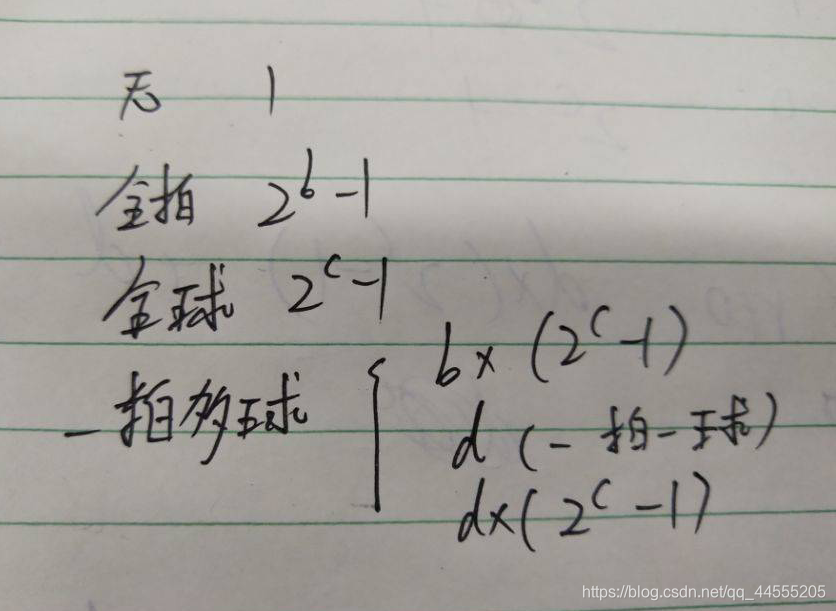 无 1
全拍 2^b-1
全球 2^c-1
一拍多球
b×(2^c-1)
d(一拍一球)
d×(2^c-1)
https://blog.csdn.net/qq_44555205